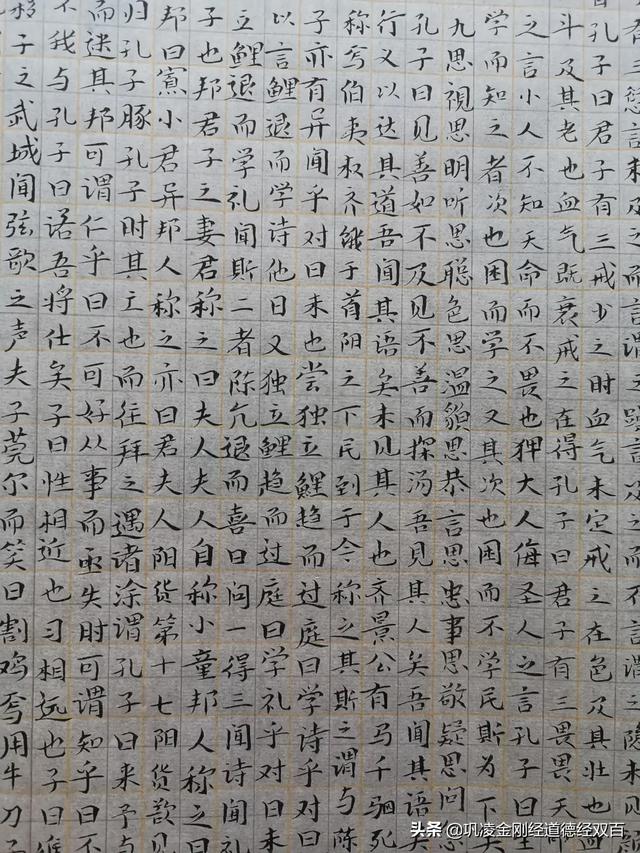 有三愆言未及之而言谓之躁言及之而不言谓之隐未见颜
孔子曰君子有三戒少之时血气未定戒之在色及其壮也血
斗及其老也血气既衰戒之在得孔子曰君子有三畏畏天
之言小人不知天命而不畏也狎大人侮圣人之言孔子曰生
学而知之者次也困而学之又其次也困而不学民斯为下矣
九思视思明听思聪色思温貌思恭言思忠事思敬疑思问
孔子曰见善如不及见不善而探汤吾见其人矣吾闻其语矣
行义以达其道吾闻其语矣未见其人也齐景公有马千驷死
称焉伯夷叔齐饿于首阳之下民到于今称之其斯之谓与陈
子亦有异闻乎对曰未也尝独立鲤趋而过庭曰学诗乎对曰
以言鲤退而学诗他日又独立鲤趋而过庭曰学礼乎对曰未
立鲤退而学礼闻斯二者陈亢退而喜曰问一得三闻诗闻礼
子也邦君子之妻君称之曰夫人夫人自称小童邦人称之曰
邦曰寡小君异邦人称之亦曰君夫人阳货第十七阳货欲见
归孔子豚孔子时其亡也而往拜之遇诸涂谓孔子曰来予与
而迷其邦可谓仁乎曰不可好从事而亟失时可谓知乎曰不
不我与孔子曰诺吾将仕矣子曰性相近也习相远也子曰唯
移子之武城闻弦歌之声夫子莞尔而笑曰割鸡焉用牛刀子
头条 @巩凌金刚经道德经双百